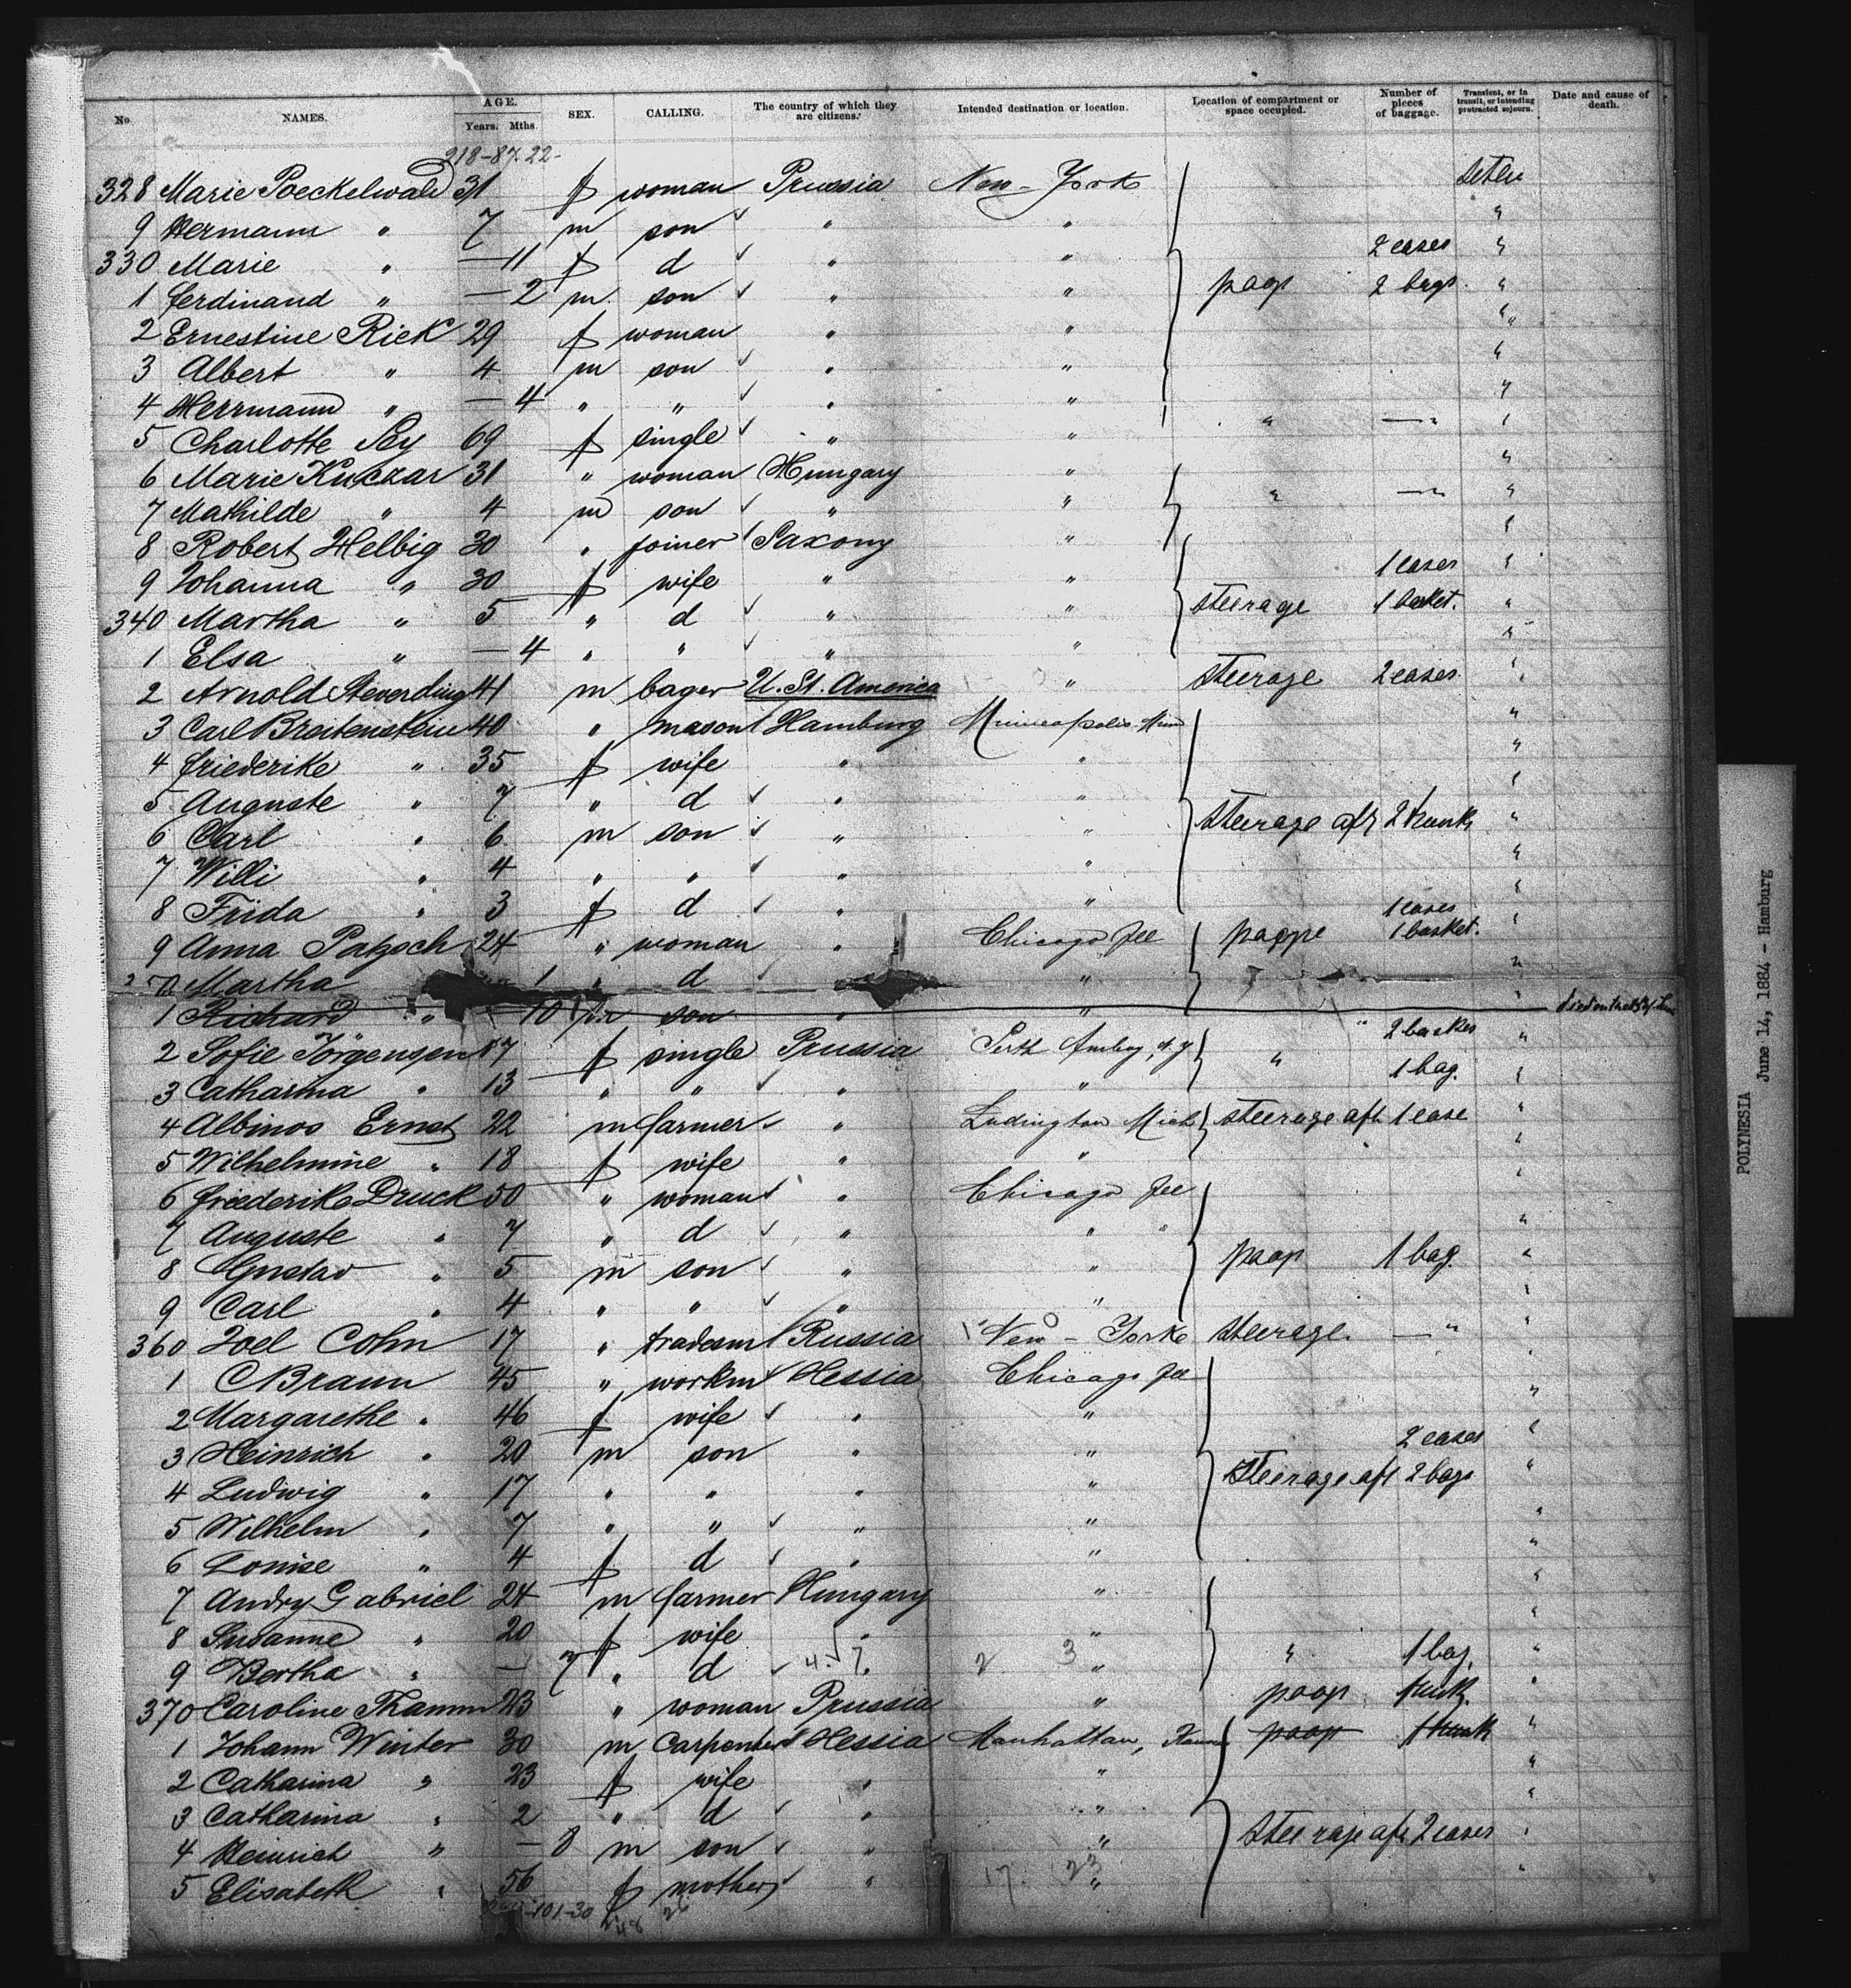 No. NAMES. AGE. Years. Mths. SEX. CALLING. The country of which they are citizens. Intended destination or location. Location of compartment or space occupied. Number of pieces of baggage. Transient, or in transit, or intending protracted sojourn. Date and cause of death.
218-87.22-
328 Marie Poeckelwald 31 f woman Prussia New-York
9 Hermann " 7 m son " "
330 Marie " — 11 f d " " 2 cases "
1 Ferdinand " — 2 m son " " poop 2 bags "
2 Ernestine Rick 29 f woman " " "
3 Albert " 4 m son " " "
4 Herrmann " — 4 " " " " "
5 Charlotte Ley 69 f single " " " — " "
6 Marie Kuczar 31 " woman Hungary " "
7 Mathilde " 4 m son " " " — " "
8 Robert Helbig 30 " joiner Saxony " "
9 Johanna " 30 f wife " " 1 cases "
340 Martha " 5 " d " " steerage 1 basket. "
1 Elsa " — 4 " " " " "
2 Arnold Steverding 41 m U. St. America " steerage 2 cases "
3 Carl Breitenstein 40 " mason Hamburg Minneapolis Minn "
4 Friederike " 35 f wife " " "
5 Auguste " 7 " d " " "
6 Carl " 6 m son " " steerage aft 2 trunks "
7 Willi " 4 " " " " "
8 Frida " 3 f d " " 1 cases "
9 Anna 24 " woman " Chicago Ill poope 1 basket. "
Martha 1 " d " "
1 Richard " — 10 m son " "
2 Sofie Jörgensen 17 f single Prussia Perth Amboy, N.J. " 2 baskets "
3 Catharina " 13 " " " " 1 bag. "
4 Albinos Ernst 22 m farmer " Ludington Mich steerage aft 1 case "
5 Wilhelmine " 18 f wife " " "
6 Friederike Druck 50 " woman " Chicago Ill "
7 Auguste " 7 " d " " "
8 Gustav " 5 m son " " poop 1 bag. "
9 Carl " 4 " " " " "
360 Joel Cohn 17 " tradesm Russia New-York steerage. — " "
1 C Braun 45 " workm Hessia Chicago Ill "
2 Margarethe " 46 f wife " " "
3 Heinrich " 20 m son " " 2 cases "
4 Ludwig " 17 " " " " steerage aft 2 bags "
5 Wilhelm " 7 " " " " "
6 Louise " 4 f d " " "
7 Andry Gabriel 24 m farmer Hungary " "
8 Susanne " 20 f wife " " "
9 Bertha " — 7 " d " " " 1 bag. "
370 Caroline Thamm 23 " woman Prussia " poop "
1 Johann Winter 30 m carpenter Hessia Manhattan, Kansas poop 1 trunk "
2 Catharina " 23 f wife " " "
3 Catharina " 2 " d " " "
4 Heinrich " — 8 m son " " steerage aft 2 cases "
5 Elisabeth " 56 f mother " " "
-101-30
POLYNESIA
June 14, 1884 - Hamburg